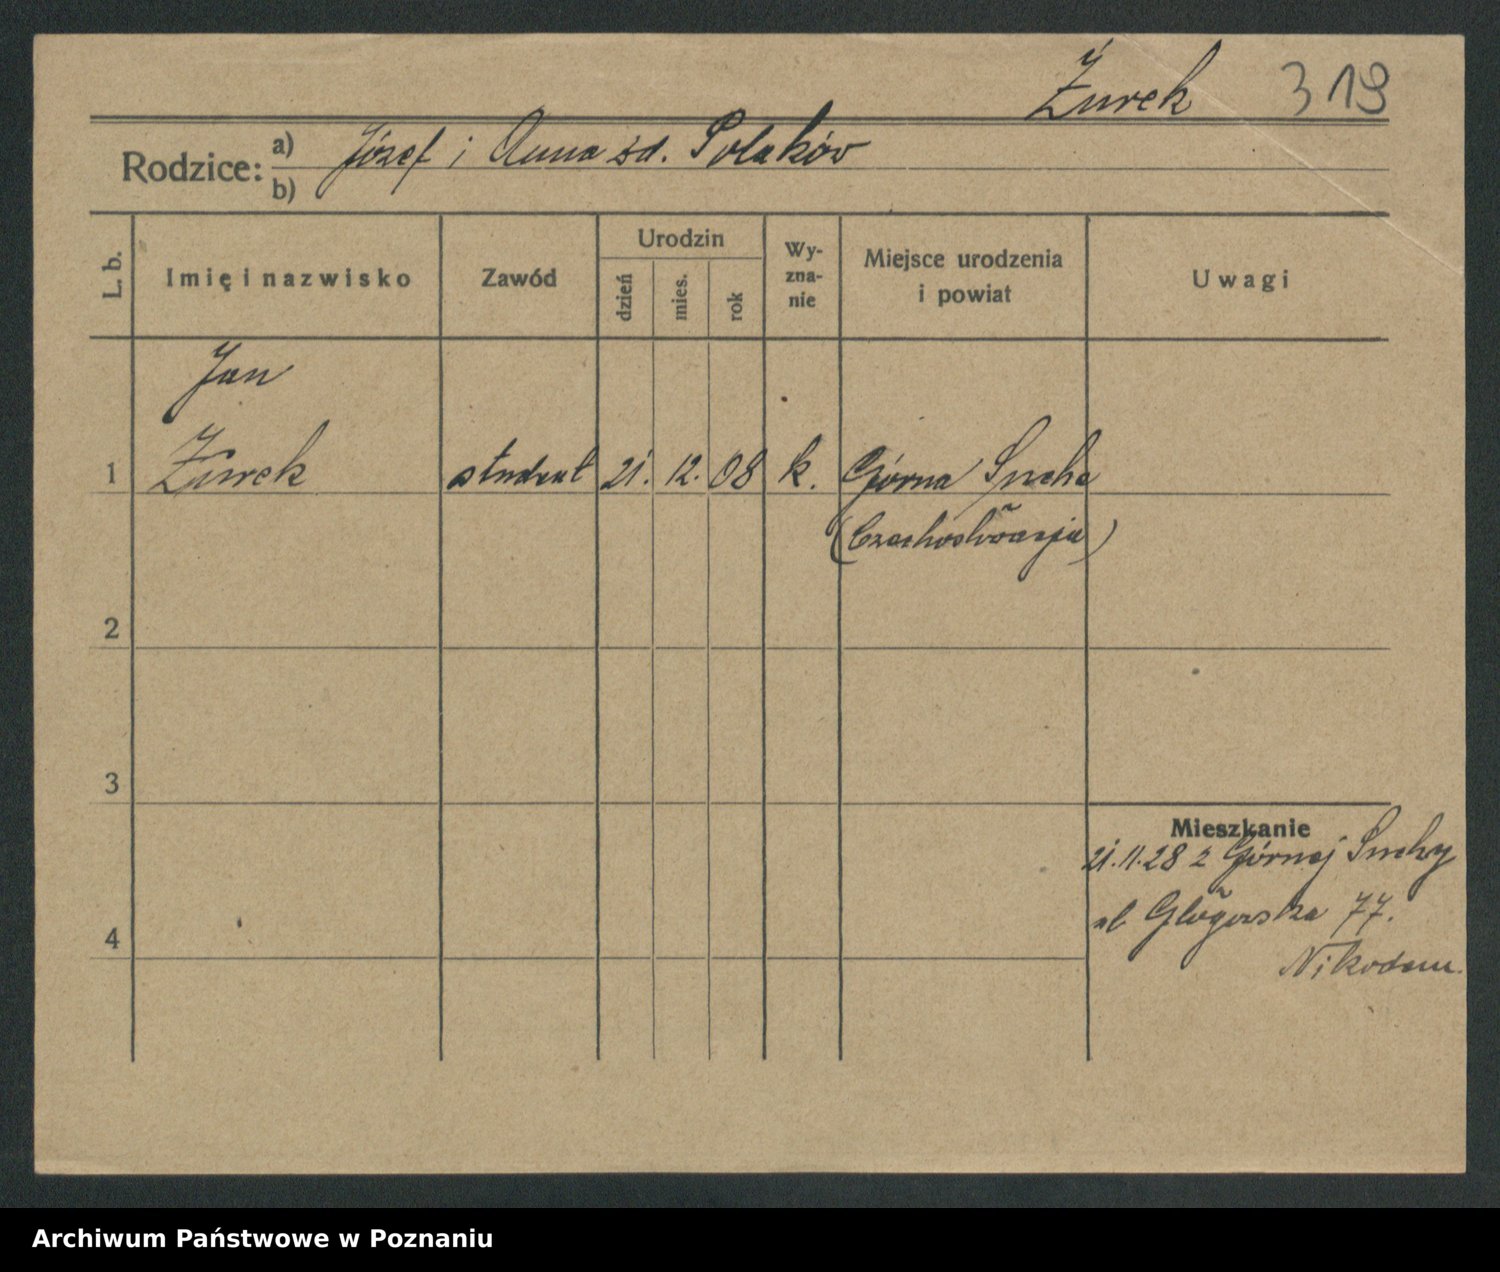 Żurek 319
Rodzice: a) Józef i Anna zd. Polaków
b)
L. b. Imię i nazwisko Zawód Urodzin dzień mies. rok Wyzna-nie Miejsce urodzenia i powiat Uwagi
Jan
1 Żurek student 21. 12. 08 k. Górna Sucha
(Czechosłowacja)
2
3
Mieszkanie
21.11.28 z Górnej Suchy
ul Głogowska 77.
4
Nikodem.
Archiwum Państwowe w Poznaniu